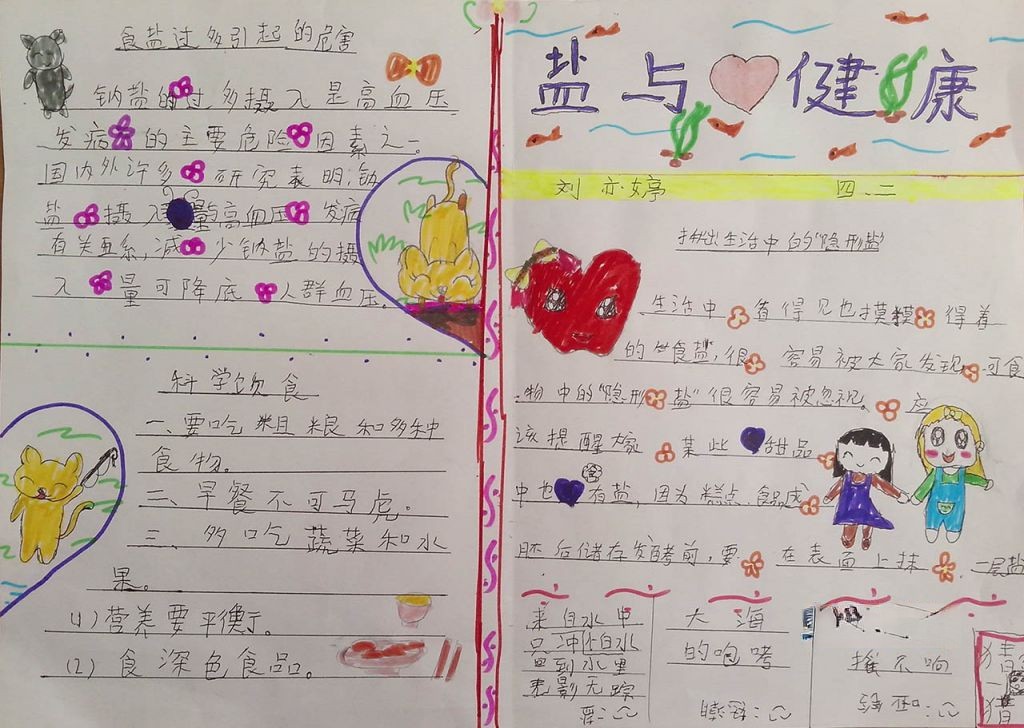 食盐过多引起的危害
钠盐的过多摄入是高血压
发病的主要危险因素之一。
国内外许多研究表明，钠
盐摄入量与高血压发病
有关系，减少钠盐的摄
入量可降底人群血压。
科学饮食
一、要吃粗粮和多种
食物。
二、早餐不可马虎。
三、多吃蔬菜和水
果。
(1)营养要平衡。
(2)食深色食品。
盐与健康
刘亦婷 四.二
揪出生活中的"隐形盐"
生活中值得见也摸摸得着
的"食盐"，很容易被大家发现，可食
物中的"隐形盐"很容易被忽视。应
该提醒大家某些甜品
中也有盐，因为糕点、食品成
胚后储存发酵前，要在表面上抹一层盐
来自水里
只冲怕白水
回到水里
无影无踪
大海
的咆哮
推不响
猜一猜